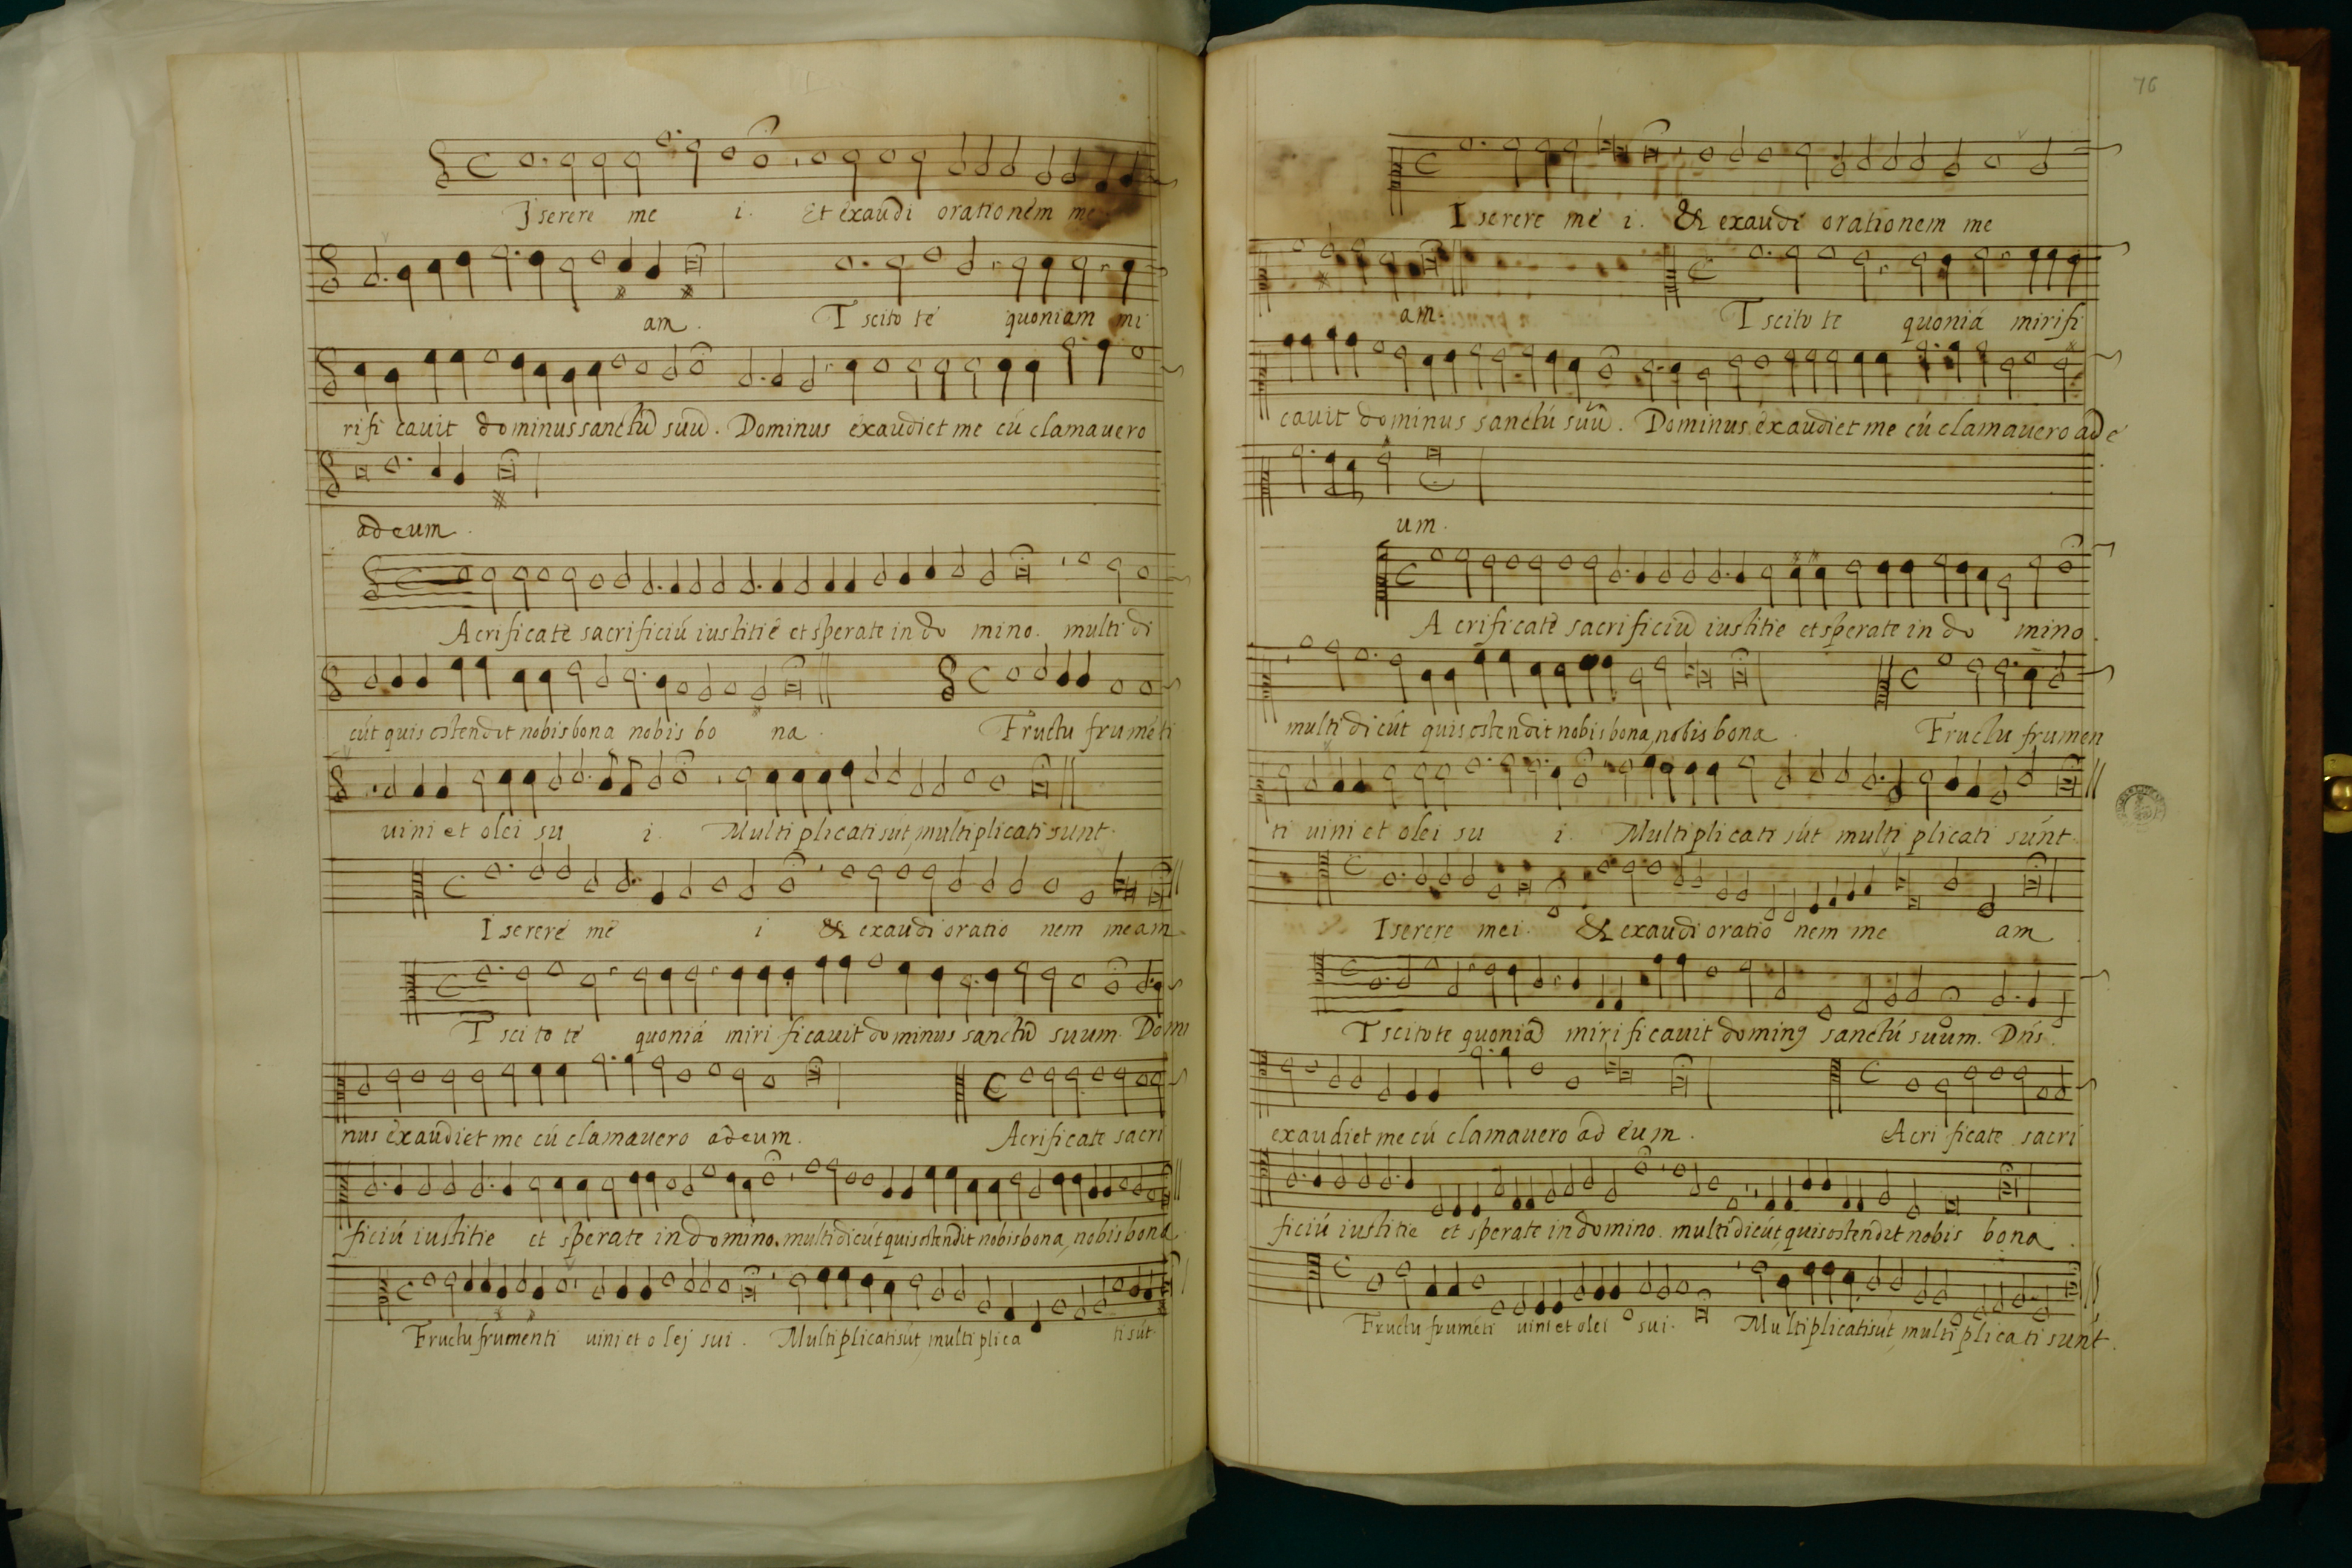 Iserere me i. Et exaudi orationem me
am. T scito te quoniam mi
rifi cauit dominus sanctũ suũ. Dominus exaudiet me cú clamauero
ad eum.
Acrificate sacrificiú iustitie et sperate in do mino. multi di
cút quis ostendit nobis bona nobis bo na. Fructu frumẽti
uini et olei su i. Multiplicati sút, multiplicati sunt.
I serere me i & exaudi oratio nem meam.
T sci to te quoniá miri ficauit dominus sanctũ suum. Domi
nus exaudiet me cú clamauero ad eum. Acrificate sacri
ficiú iustitie et sperate in domino. multi dicút quis ostendit nobis bona, nobis bona
Fructu frumenti uini et olej sui. Multiplicati sút, multi plica ti sút.
76
I serere me i. & exaudi orationem me
am. T scito te quoniá mirifi
cauit dominus sanctú suũ. Dominus exaudiet me cú clamauero ad e
um.
A crificate sacrificiũ iustitie et sperate in do mino.
multi dicút quis ostendit nobis bona, nobis bona. Fructu frumen
ti uini et olei su i. Multiplicati sút multi plicati sunt.
I serere mei. & exaudi oratio nem me am.
T scitote quoniã miri ficauit dominꝰ sanctú suum. Dńs.
exaudiet me cú clamauero ad eum. Acri ficate sacri
ficiú iustitie et sperate in domino. multi dicút, quis ostendit nobis bona.
Fructu frumẽti uini et olei sui. Multiplicati sút, multi plica ti sunt.